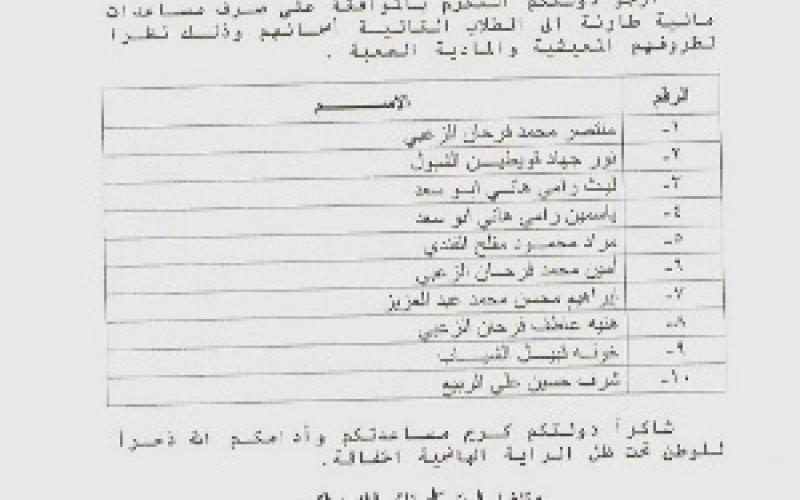 ارجو دولتكم التكرم بالموافقة على صرف مساعدات
مالية طارئة الى الطلاب التالية أسمائهم وذلك نظرا
لظروفهم المعيشية والمادية الصعبة .
الرقم الاســـــم
١- منتصر محمد فرحان الزعبي
٢- نور جهاد قويطيــن الشبول
٣- ليث رامي هانــي ابــو سعد
٤- ياسمين رامي هاني ابو سعد
٥- مراد محمــود مفلح الفندي
٦- أمين محمد فرحــان الزعبي
٧- إبراهيم محسن محمد عبد العزيز
٨- هنيه عاطف فرحان الزعبي
٩- خولــه نبيــل الشيــاب
١٠- شرف حسين علي الربيع
شاكراً دولتكم كرم مساعدتكم وأدامكم الله ذخراً
للوطن تحت ظل الراية الهاشمية الخفاقة.